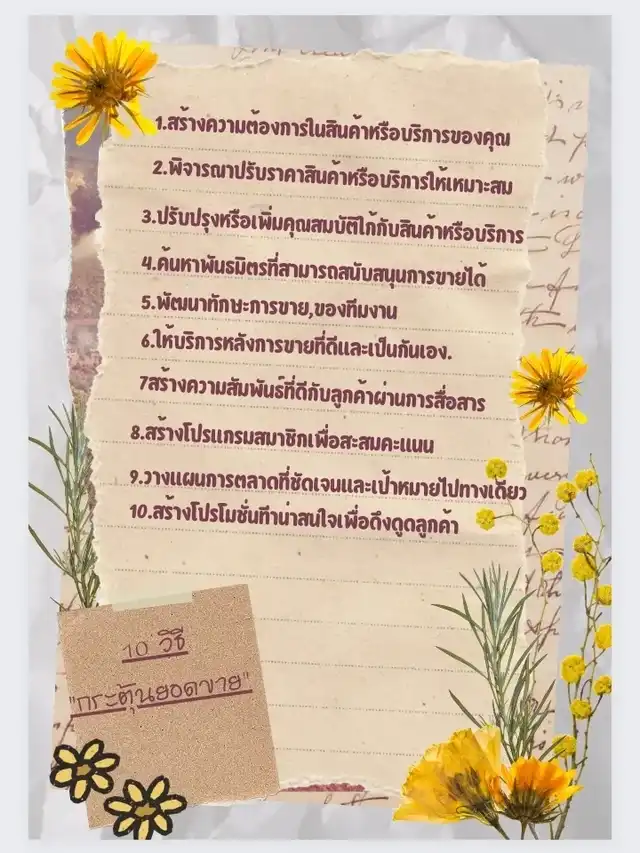 1.สร้างความต้องการในสินค้าหรือบริการของคุณ
2.พิจารณาปรับราคาสินค้าหรือบริการให้เหมาะสม
3.ปรับปรุงหรือเพิ่มคุณสมบัติให้กับสินค้าหรือบริการ
4.ค้นหาพันธมิตรที่สามารถสนับสนุนการขายได้
5.พัฒนาทักษะการขาย,ของทีมงาน
6.ให้บริการหลังการขายที่ดีและเป็นกันเอง.
7สร้างความสัมพันธ์ที่ดีกับลูกค้าผ่านการสื่อสาร
8.สร้างโปรแกรมสมาชิกเพื่อสะสมคะแนน
9.วางแผนการตลาดที่ชัดเจนและเป้าหมายไปทางเดียว
10.สร้างโปรโมชั่นที่น่าสนใจเพื่อดึงดูดลูกค้า
10 วิธี
"กระตุ้นยอดขาย"